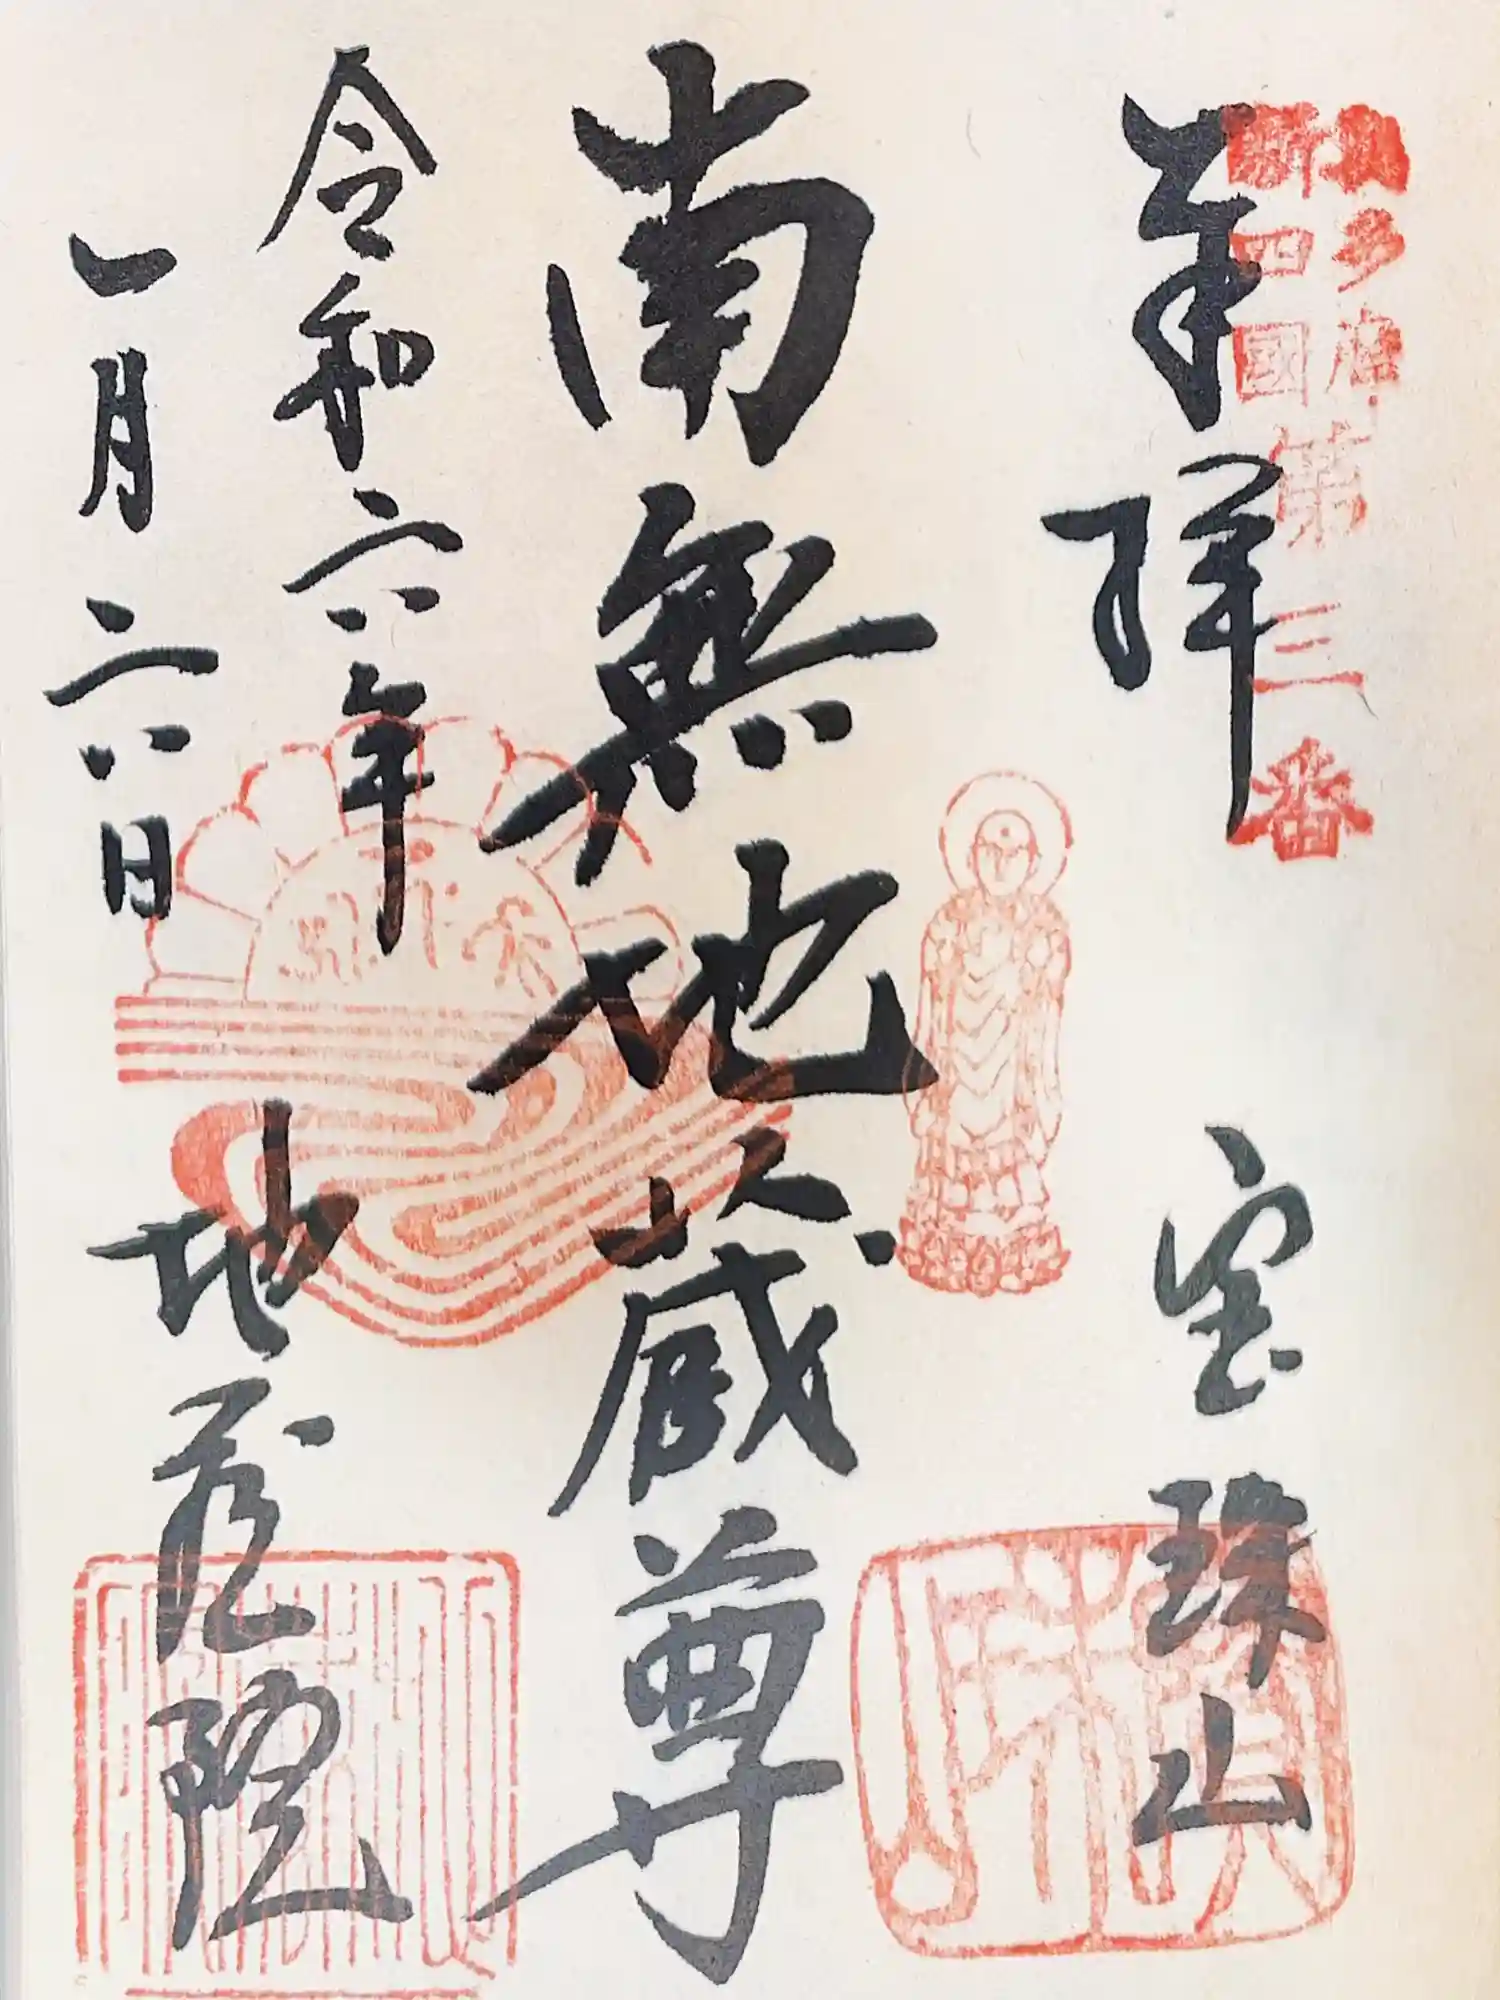 奥多摩
新四國
第三番
奉拝
宝珠山
南無地蔵尊
令和六年
一月六日
地蔵院